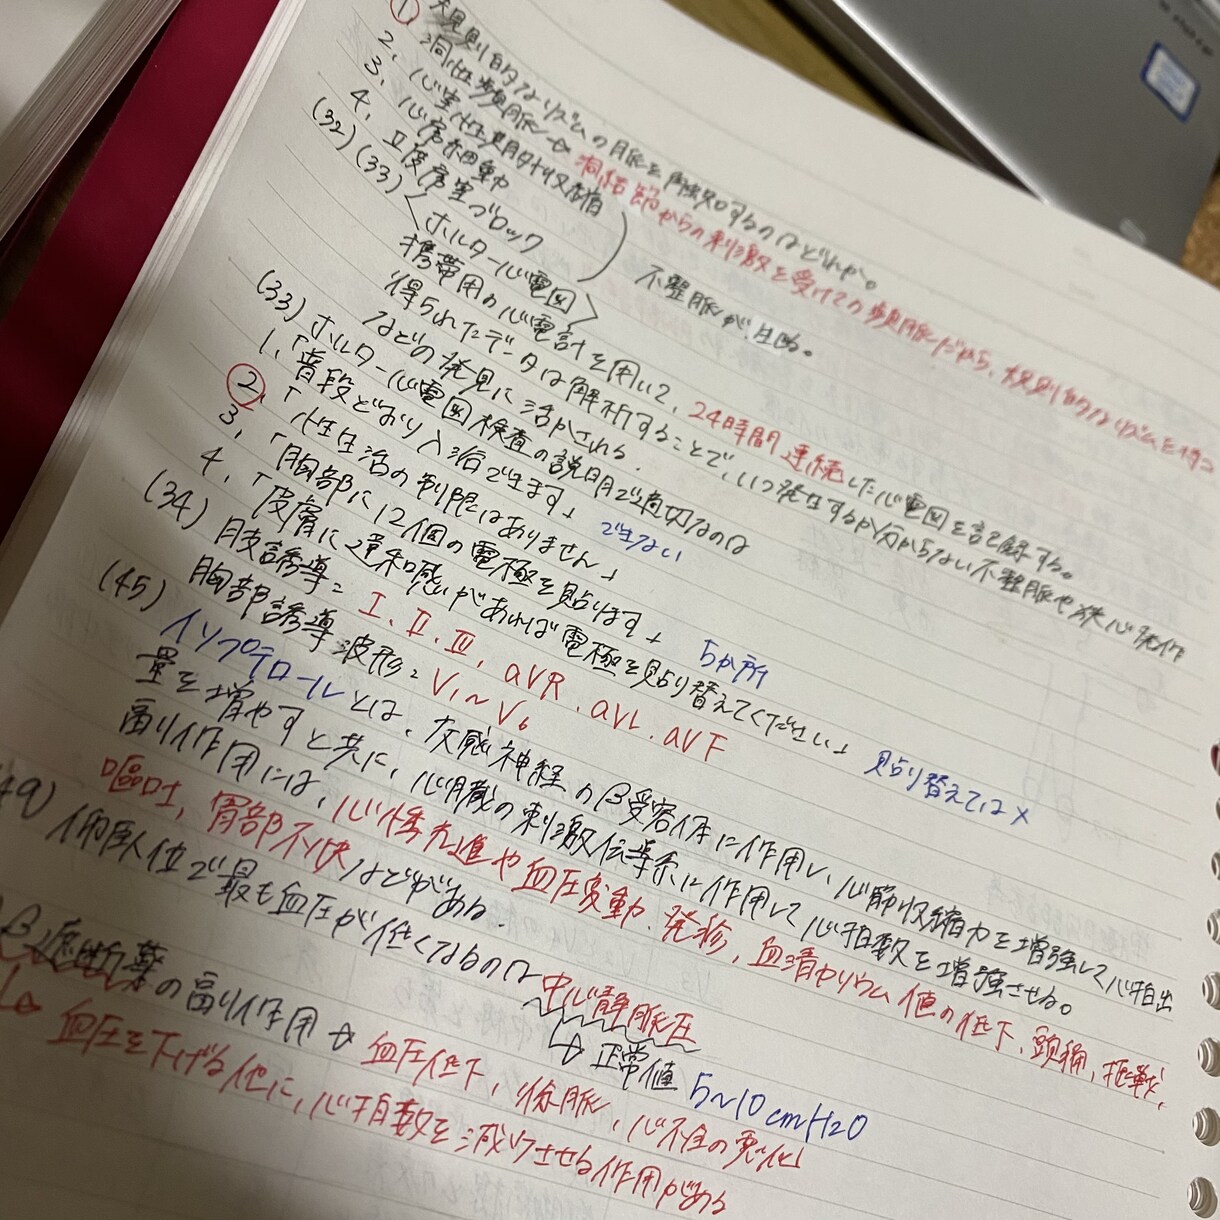 規則的なリズムの脈を触知するのはどれか。
① 洞性頻脈 → 洞結節からの刺激を受けての頻脈だから、規則的なリズムを
2. 心室性期外収縮
3. 心房細動
4. Ⅲ度房室ブロック
不整脈が出る。
(32)(33) 〈ホルター心電図〉
携帯用の心電計を用いて、24時間連続した心電図を記録する。
得られたデータは解析することで、いつ発生するか分からない不整脈や狭心発作
などの発見に活かされる.
(33) ホルター心電図検査の説明で適切なのは
1.「普段どおり入浴できます」 できない
②.「性生活の制限はありません」
3.「胸部に12個の電極を貼ります」 5か所
4.「皮膚に違和感があれば電極を貼り替えてください」 貼り替えては×
(34) 肢誘導: Ⅰ.Ⅱ.Ⅲ, aVR . aVL . aVF
胸部誘導波形: V₁〜V₆
(45) イソプテロールとは、交感神経のβ受容体に作用し、心筋収縮力を増強して心拍出
量を増やすと共に、心臓の刺激伝導系に作用して心拍数を増強させる。
副作用には、心悸亢進や血圧変動、発疹, 血清カリウム値の低下、頭痛, 振戦,
嘔吐, 胃部不快などがある.
49) 仰臥位で最も血圧が低くなるのは中心静脈圧
↳ 正常値 5~10cmH2O
β遮断薬の副作用 → 血圧低下, 徐脈, 心不全の悪化
↳ 血圧を下げる他に、心拍数を減少させる作用がある